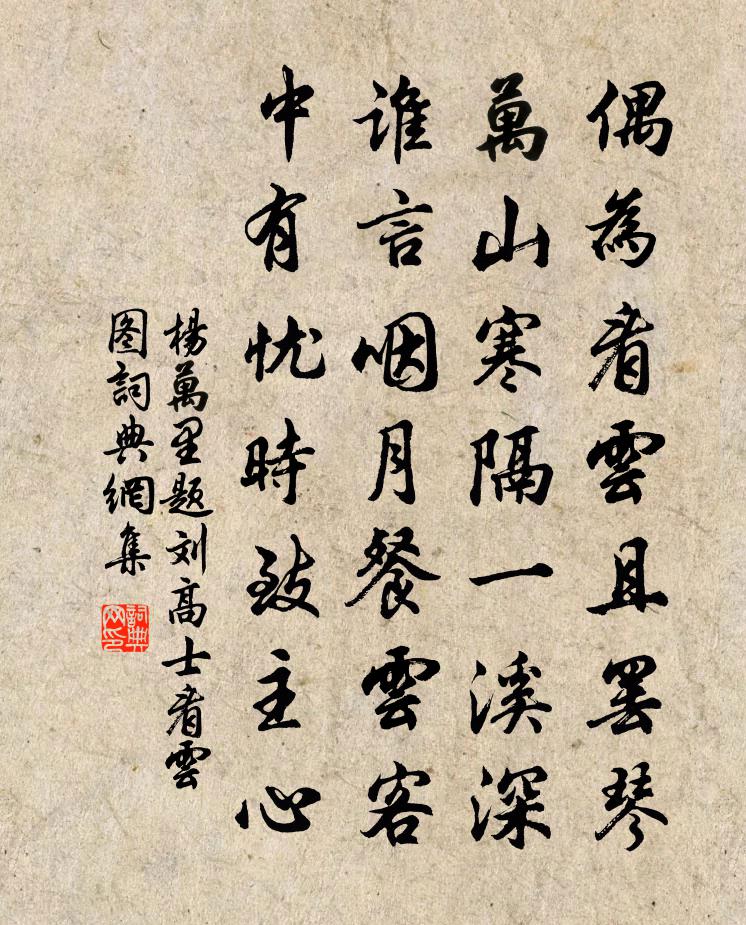 偶為看雲且罢琴
萬山寒隔一溪深
谁言咽月餐雲客
中有忧時致主心
楊萬里题刘高士看雲
图詞典網集
詞典網印